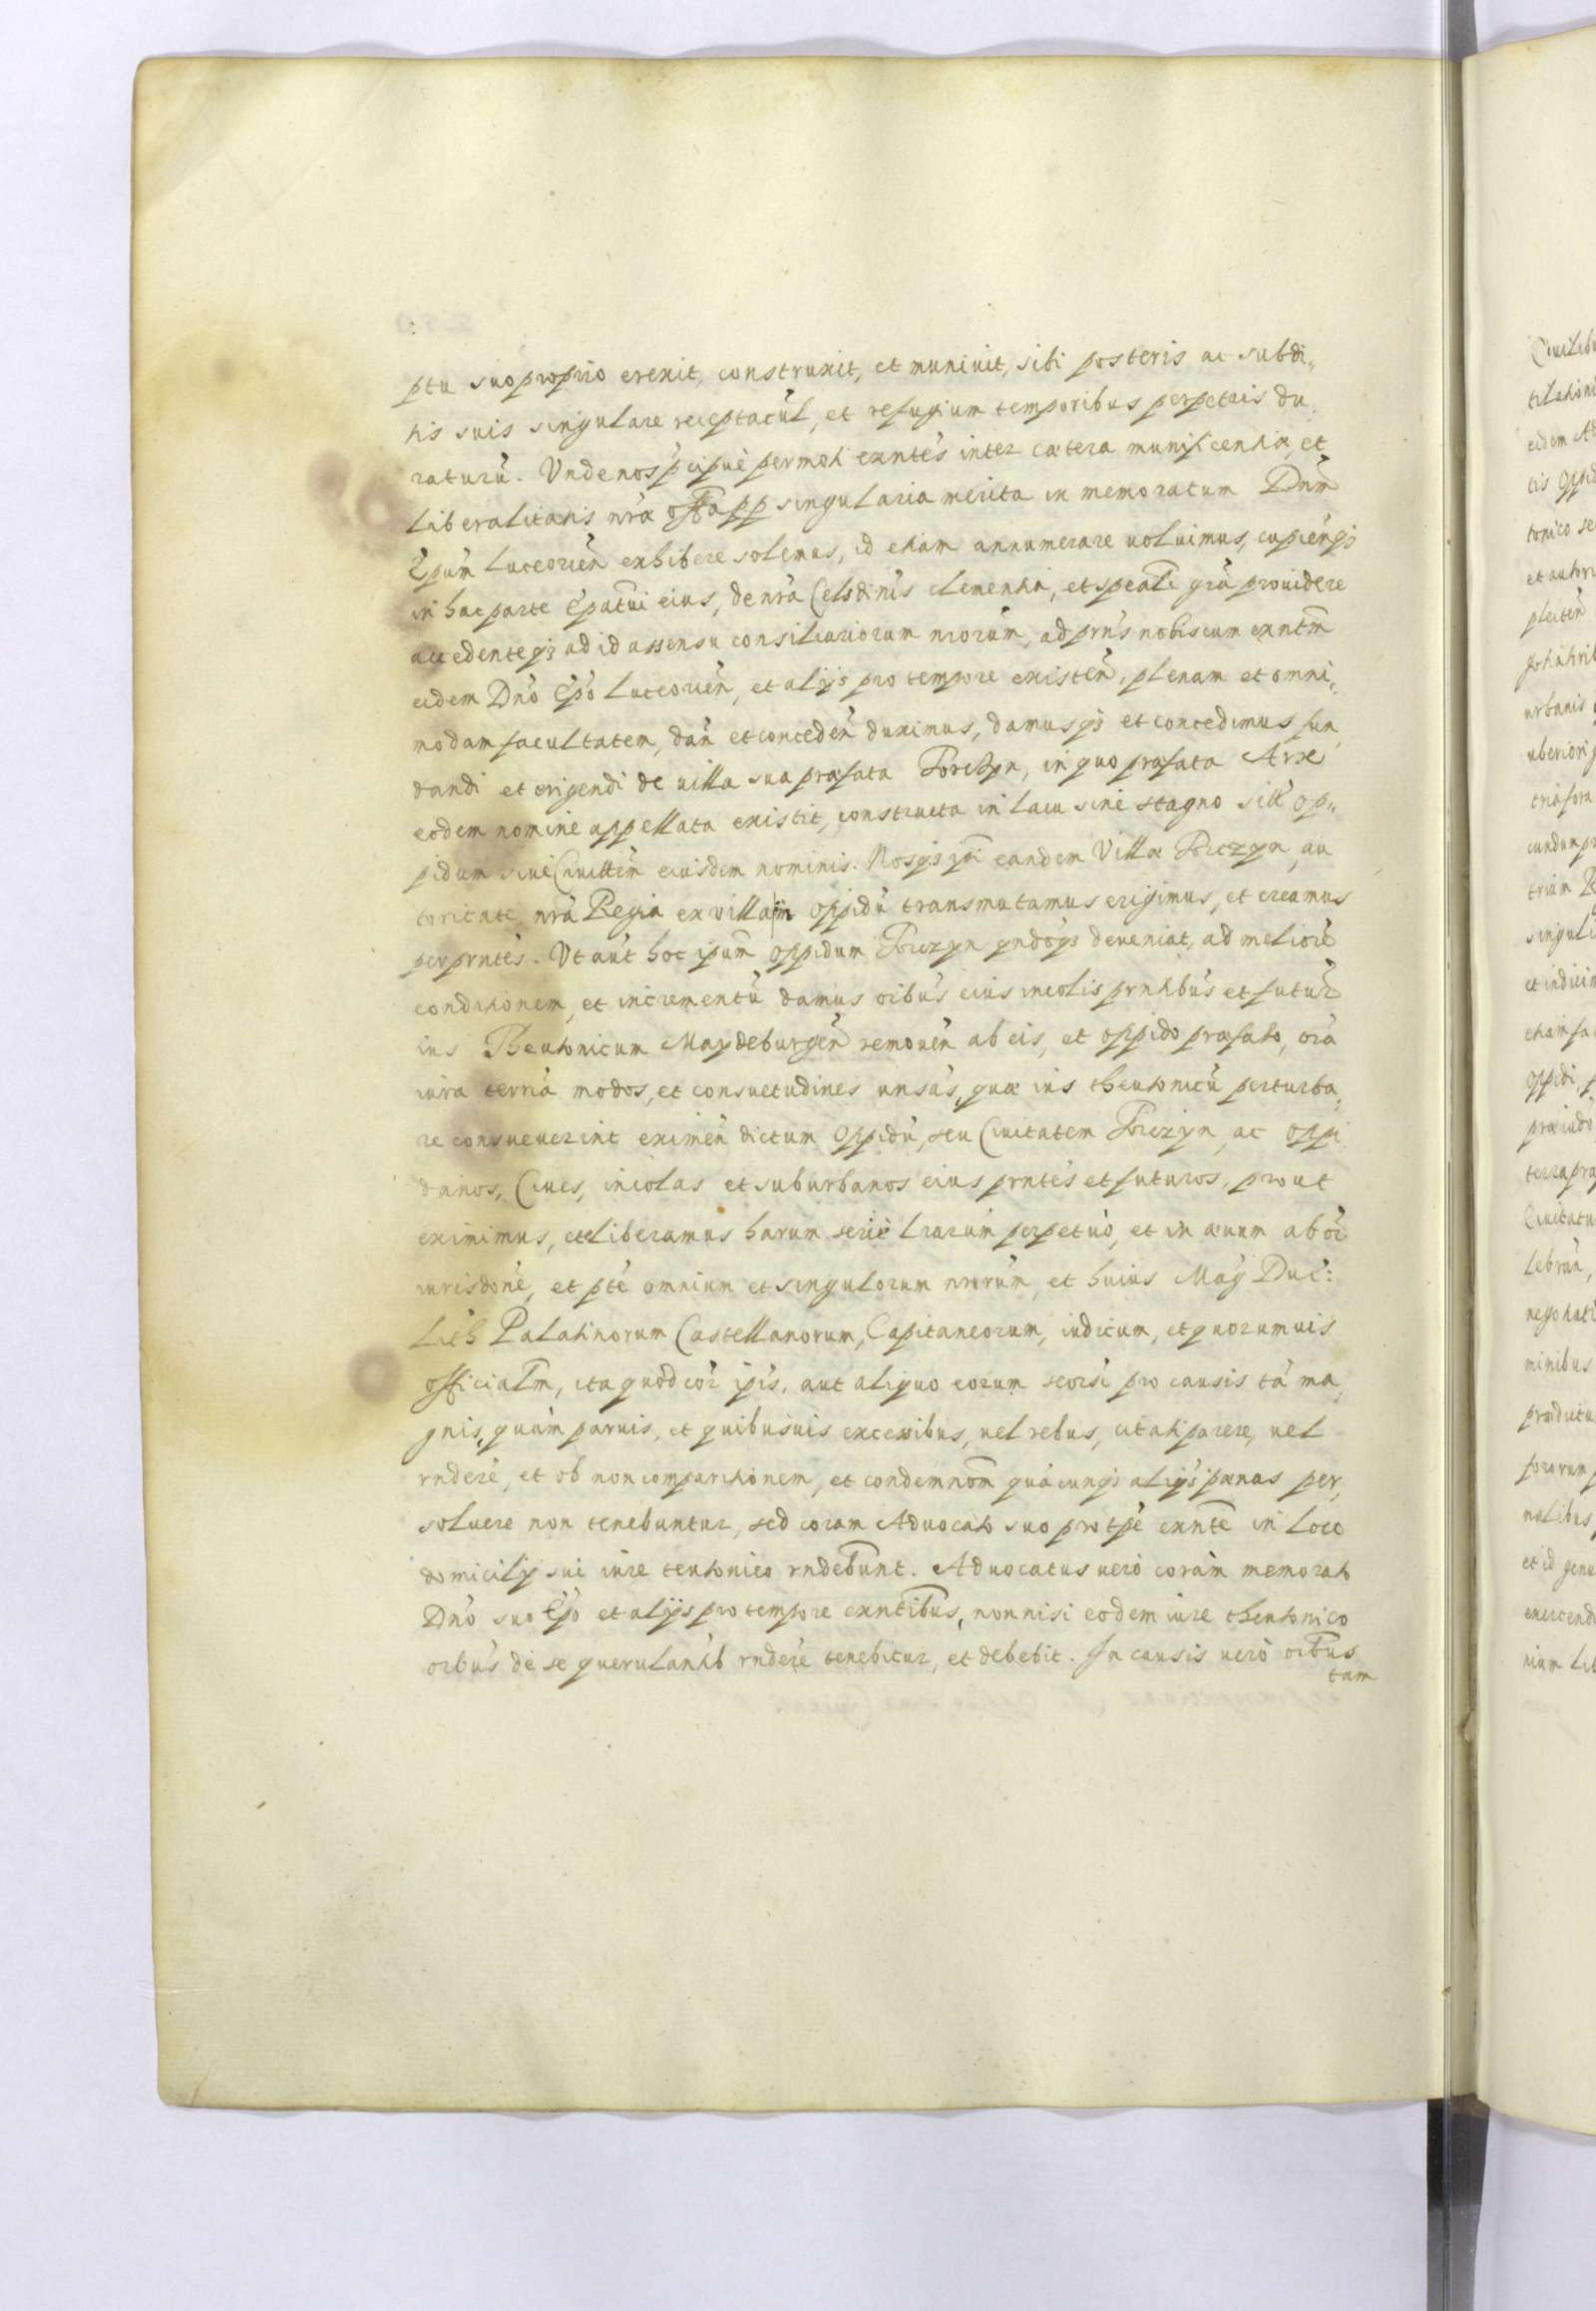 ptu suo proprio erexit, construxit, et muniuit, sibi posteris ac subdi„
tis suis singulare receptacul̃, et refugium temporibus perpetuis du„
raturũ. Vnde nos p̃cipuè permoti exñtes inter cætera munificentiæ, et
liberalitatis nr̃æ singularia merita in memoratum Dñm
Ep̃um Luceorieñ exhibere solemus, id etiam annumerare uoluimus, cupieñqꝫ
in hac parte Ep̃atui eius, de nr̃a Celsdinis clementia, et speali gr̃a prouidere
accedenteqꝫ ad id assensu consiliariorum nrorũm, ad prñs nobiscum exñtm̃
eidem Dño Ep̃o Luceorieñ, et alijs pro tempore existeñ, plenam et omni„
modam facultatem, dañ et concedeñ duximus, damusqꝫ et concedimus fun
dandi et erigendi de uilla sua præfata Torczyn, in quo præfata Arx
eodem nomine appellata existit, constructa in lacu siue stagno sill̃ op„
pidum siue Ciuittem̃ eiusdem nominis. Nosqꝫ ip̃i eandem Villæ Torczyn, au
toritate nr̃a Regia ex villa in oppidũ transmutamus erigimus, et creamus
per prñtes. Vt aũt hoc ipum̃ oppidum Torczyn qndoqꝫ deueniat, ad meliorẽ
conditionem, et incrementũ damus oĩbus eius incolis prñtibus et futur̃
ius Theutonicum Maydeburgeñ remoueñ ab eis, et oppido præfato, oĩa
iura terrã modos, et consuetudines unsas, quæ ius theutonicũ perturba„
re consueuerint eximeñ dictum Oppidũ, seu Ciuitatem Torczyn, ac oppi
danos, Ciues, incolas et suburbanos eius prñtes et futuros, prout
eximimus, et liberamus harum serie lrarum̃ perpetuò, et in æuum ab oĩ
iurisdonẽ, et ptẽ omnium et singulorum nrorũm, et huius Mag̃ Duc̃:
Lith Palatinorum Castellanorum, Capitaneorum, iudicum, et quorumuis
officialm̃, ita quod cor̃ ip̃is, aut aliquo eorum seorsĩ pro causis tã ma„
gnis, quàm paruis, et quibusuis excessibus, uel rebus, citati parere, uel
rndere, et ob non comparitionem, et condemnom̃ quacunqꝫ aliqs pænas per„
soluere non tenebuntur, sed coram Aduocato suo pro tpẽ exñte in loco
domicilij sui iure teutonico rndebunt. Aduocatus uerò corãm memorato
Dñò suo Ep̃o et alijs pro tempore exñtibus, non nisi eodem iure theutonico
oĩbus de se querulantib rndere tenebitur, et debebit. In causis uerò oĩbus
tam